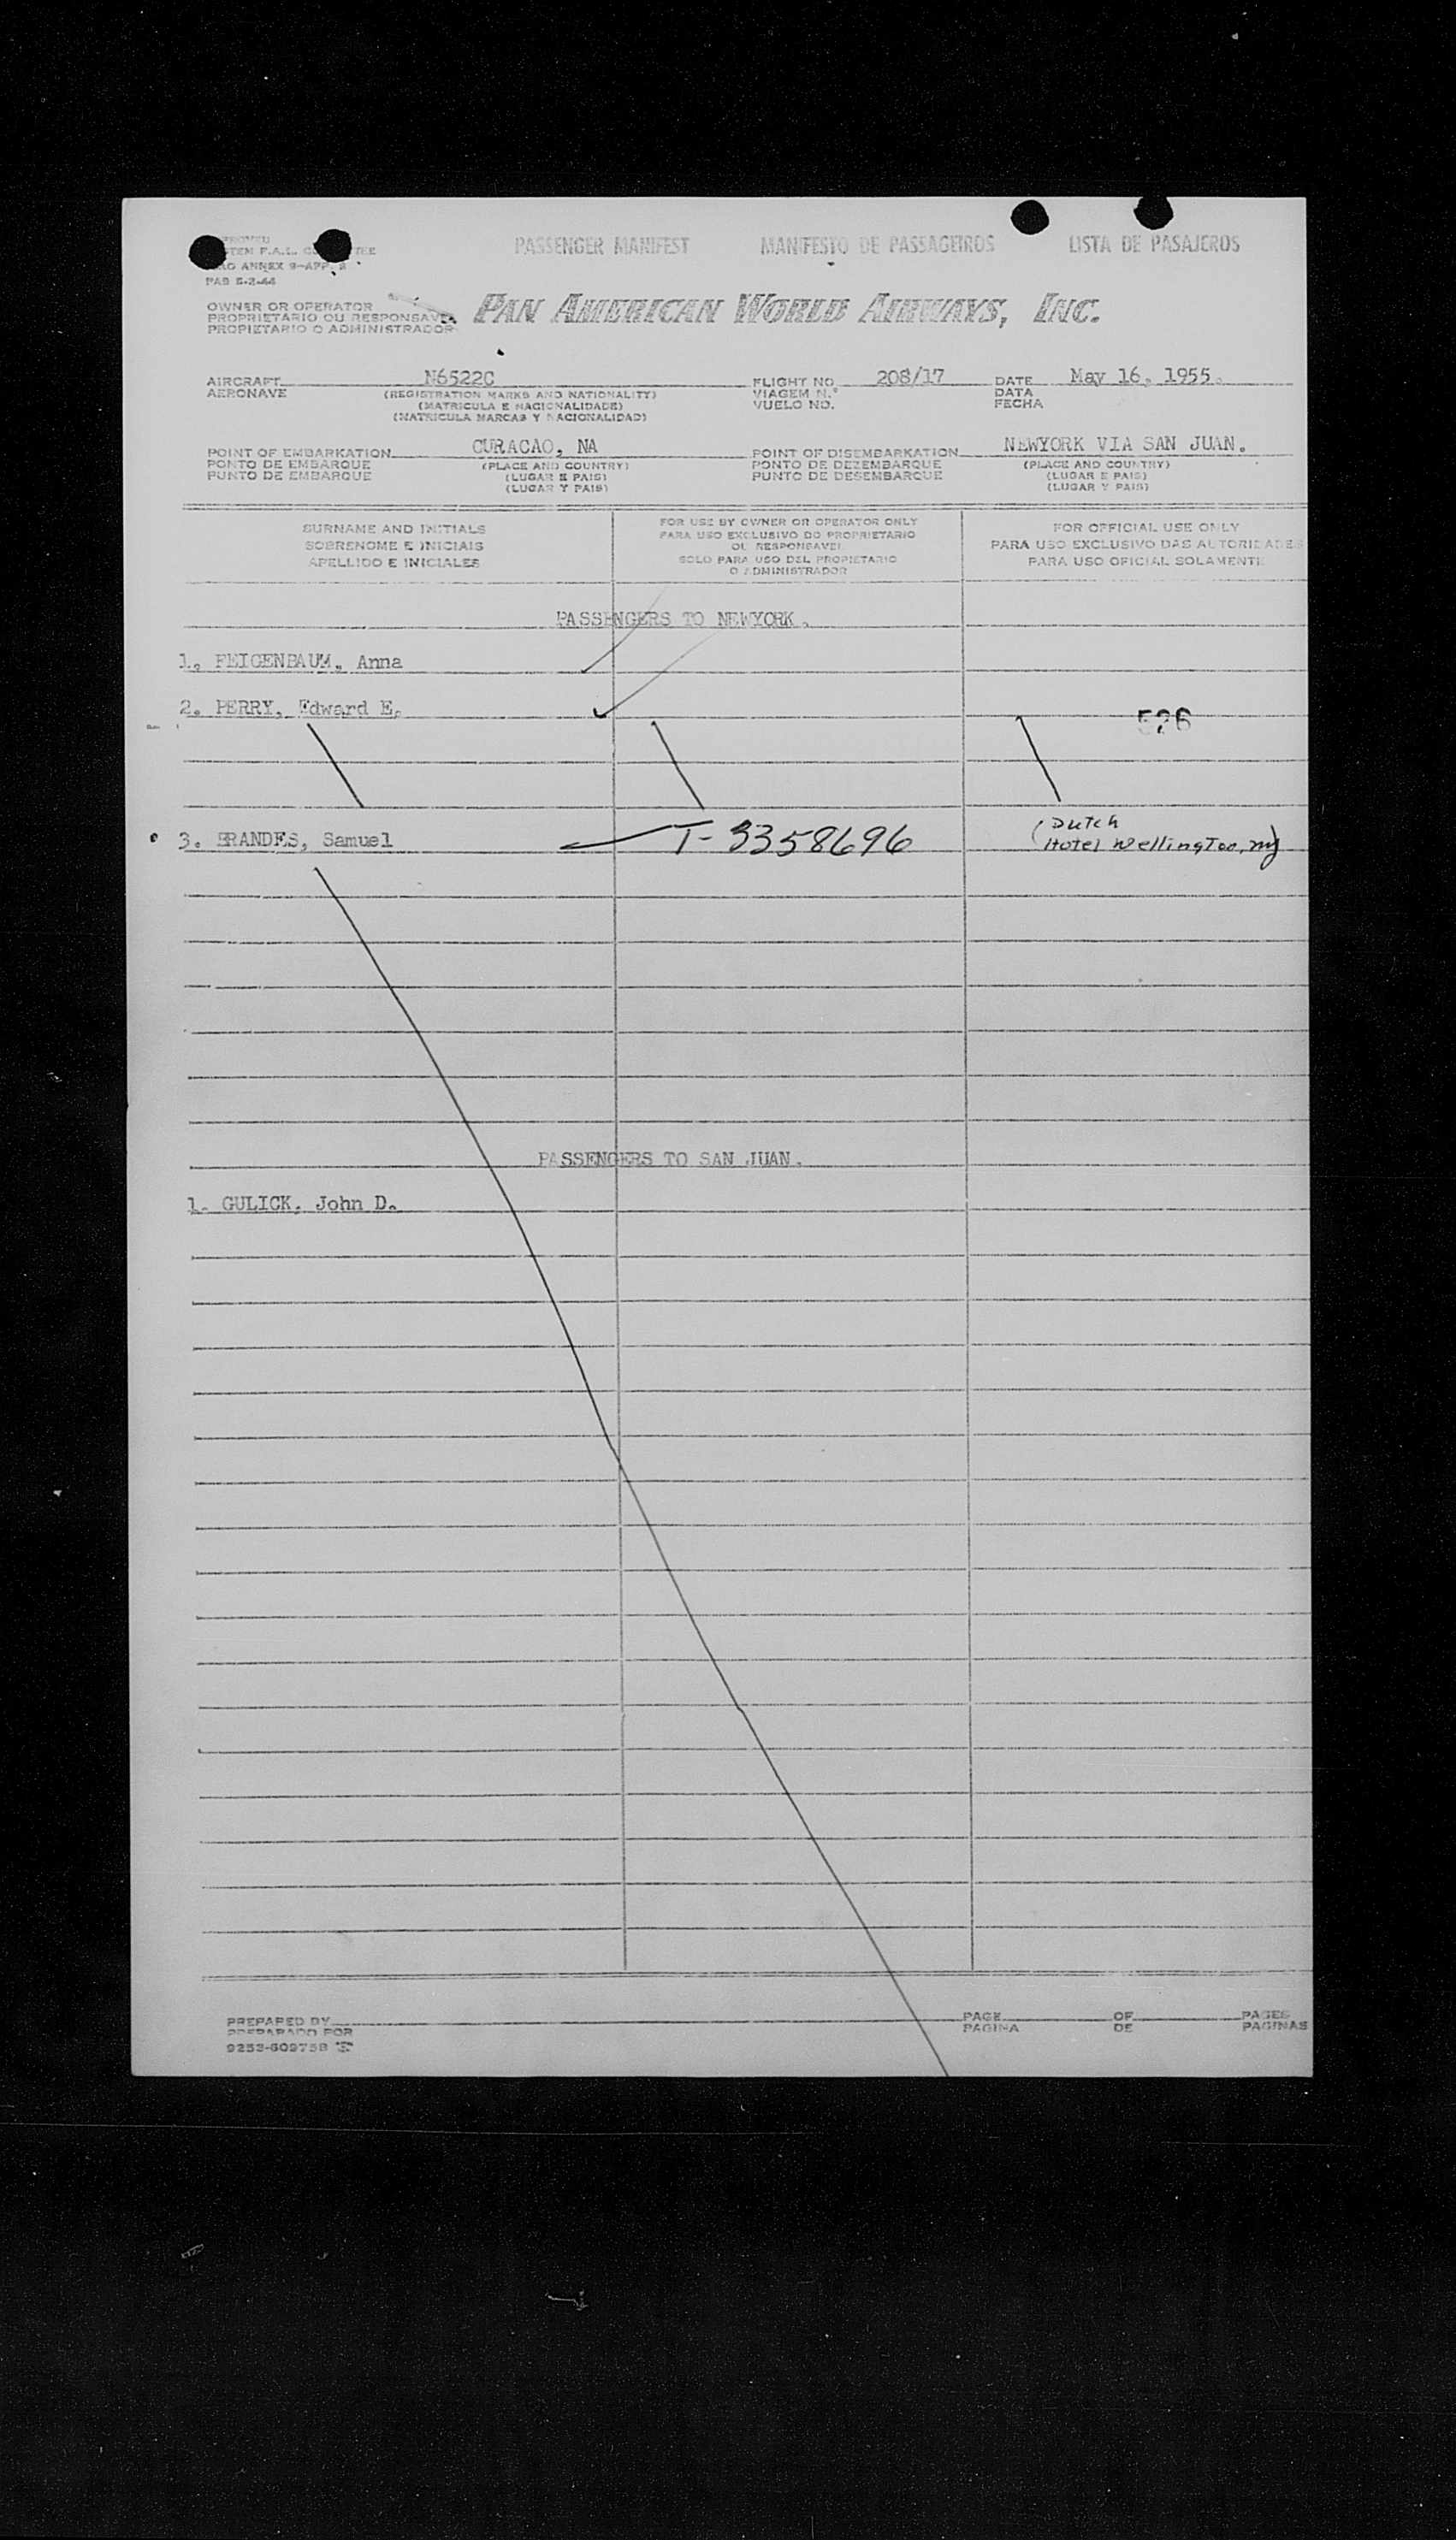 PASSENGER MANIFEST MANIFESTO DE PASSAGEIROS LISTA DE PASAJEROS
ANNEX 9-APP. 2
PAB 5-2-44
OWNER OR OPERATOR
PROPRIETARIO OU RESPONSAVEL
PROPIETARIO O ADMINISTRADOR
PAN AMERICAN WORLD AIRWAYS, INC.
AIRCRAFT N6522C FLIGHT NO 208/17 DATE May 16, 1955.
AERONAVE (REGISTRATION MARKS AND NATIONALITY) VIAGEM N.° DATA
(MATRICULA E NACIONALIDADE) VUELO NO. FECHA
(MATRICULA MARCAS Y NACIONALIDAD)
POINT OF EMBARKATION CURACAO, NA POINT OF DISEMBARKATION NEWYORK VIA SAN JUAN.
PONTO DE EMBARQUE (PLACE AND COUNTRY) PONTO DE DEZEMBARQUE (PLACE AND COUNTRY)
PUNTO DE EMBARQUE (LUGAR E PAIS) PUNTO DE DESEMBARQUE (LUGAR E PAIS)
(LUGAR Y PAIS) (LUGAR Y PAIS)
SURNAME AND INITIALS
SOBRENOME E INICIAIS
APELLIDO E INICIALES
FOR USE BY OWNER OR OPERATOR ONLY
PARA USO EXCLUSIVO DO PROPRIETARIO
OU RESPONSAVEL
SOLO PARA USO DEL PROPIETARIO
O ADMINISTRADOR
FOR OFFICIAL USE ONLY
PARA USO EXCLUSIVO DAS AUTORIDADES
PARA USO OFICIAL SOLAMENTE
PASSENGERS TO NEWYORK.
1. FEIGENBAUM, Anna
2. PERRY, Edward E.
526
3. BRANDES, Samuel T-3358696 (Dutch
Hotel Wellington, NY)
PASSENGERS TO SAN JUAN.
1. GULICK, John D.
PREPARED BY PAGE OF PAGES
PREPARADO POR PAGINA DE PAGINAS
9253-609758